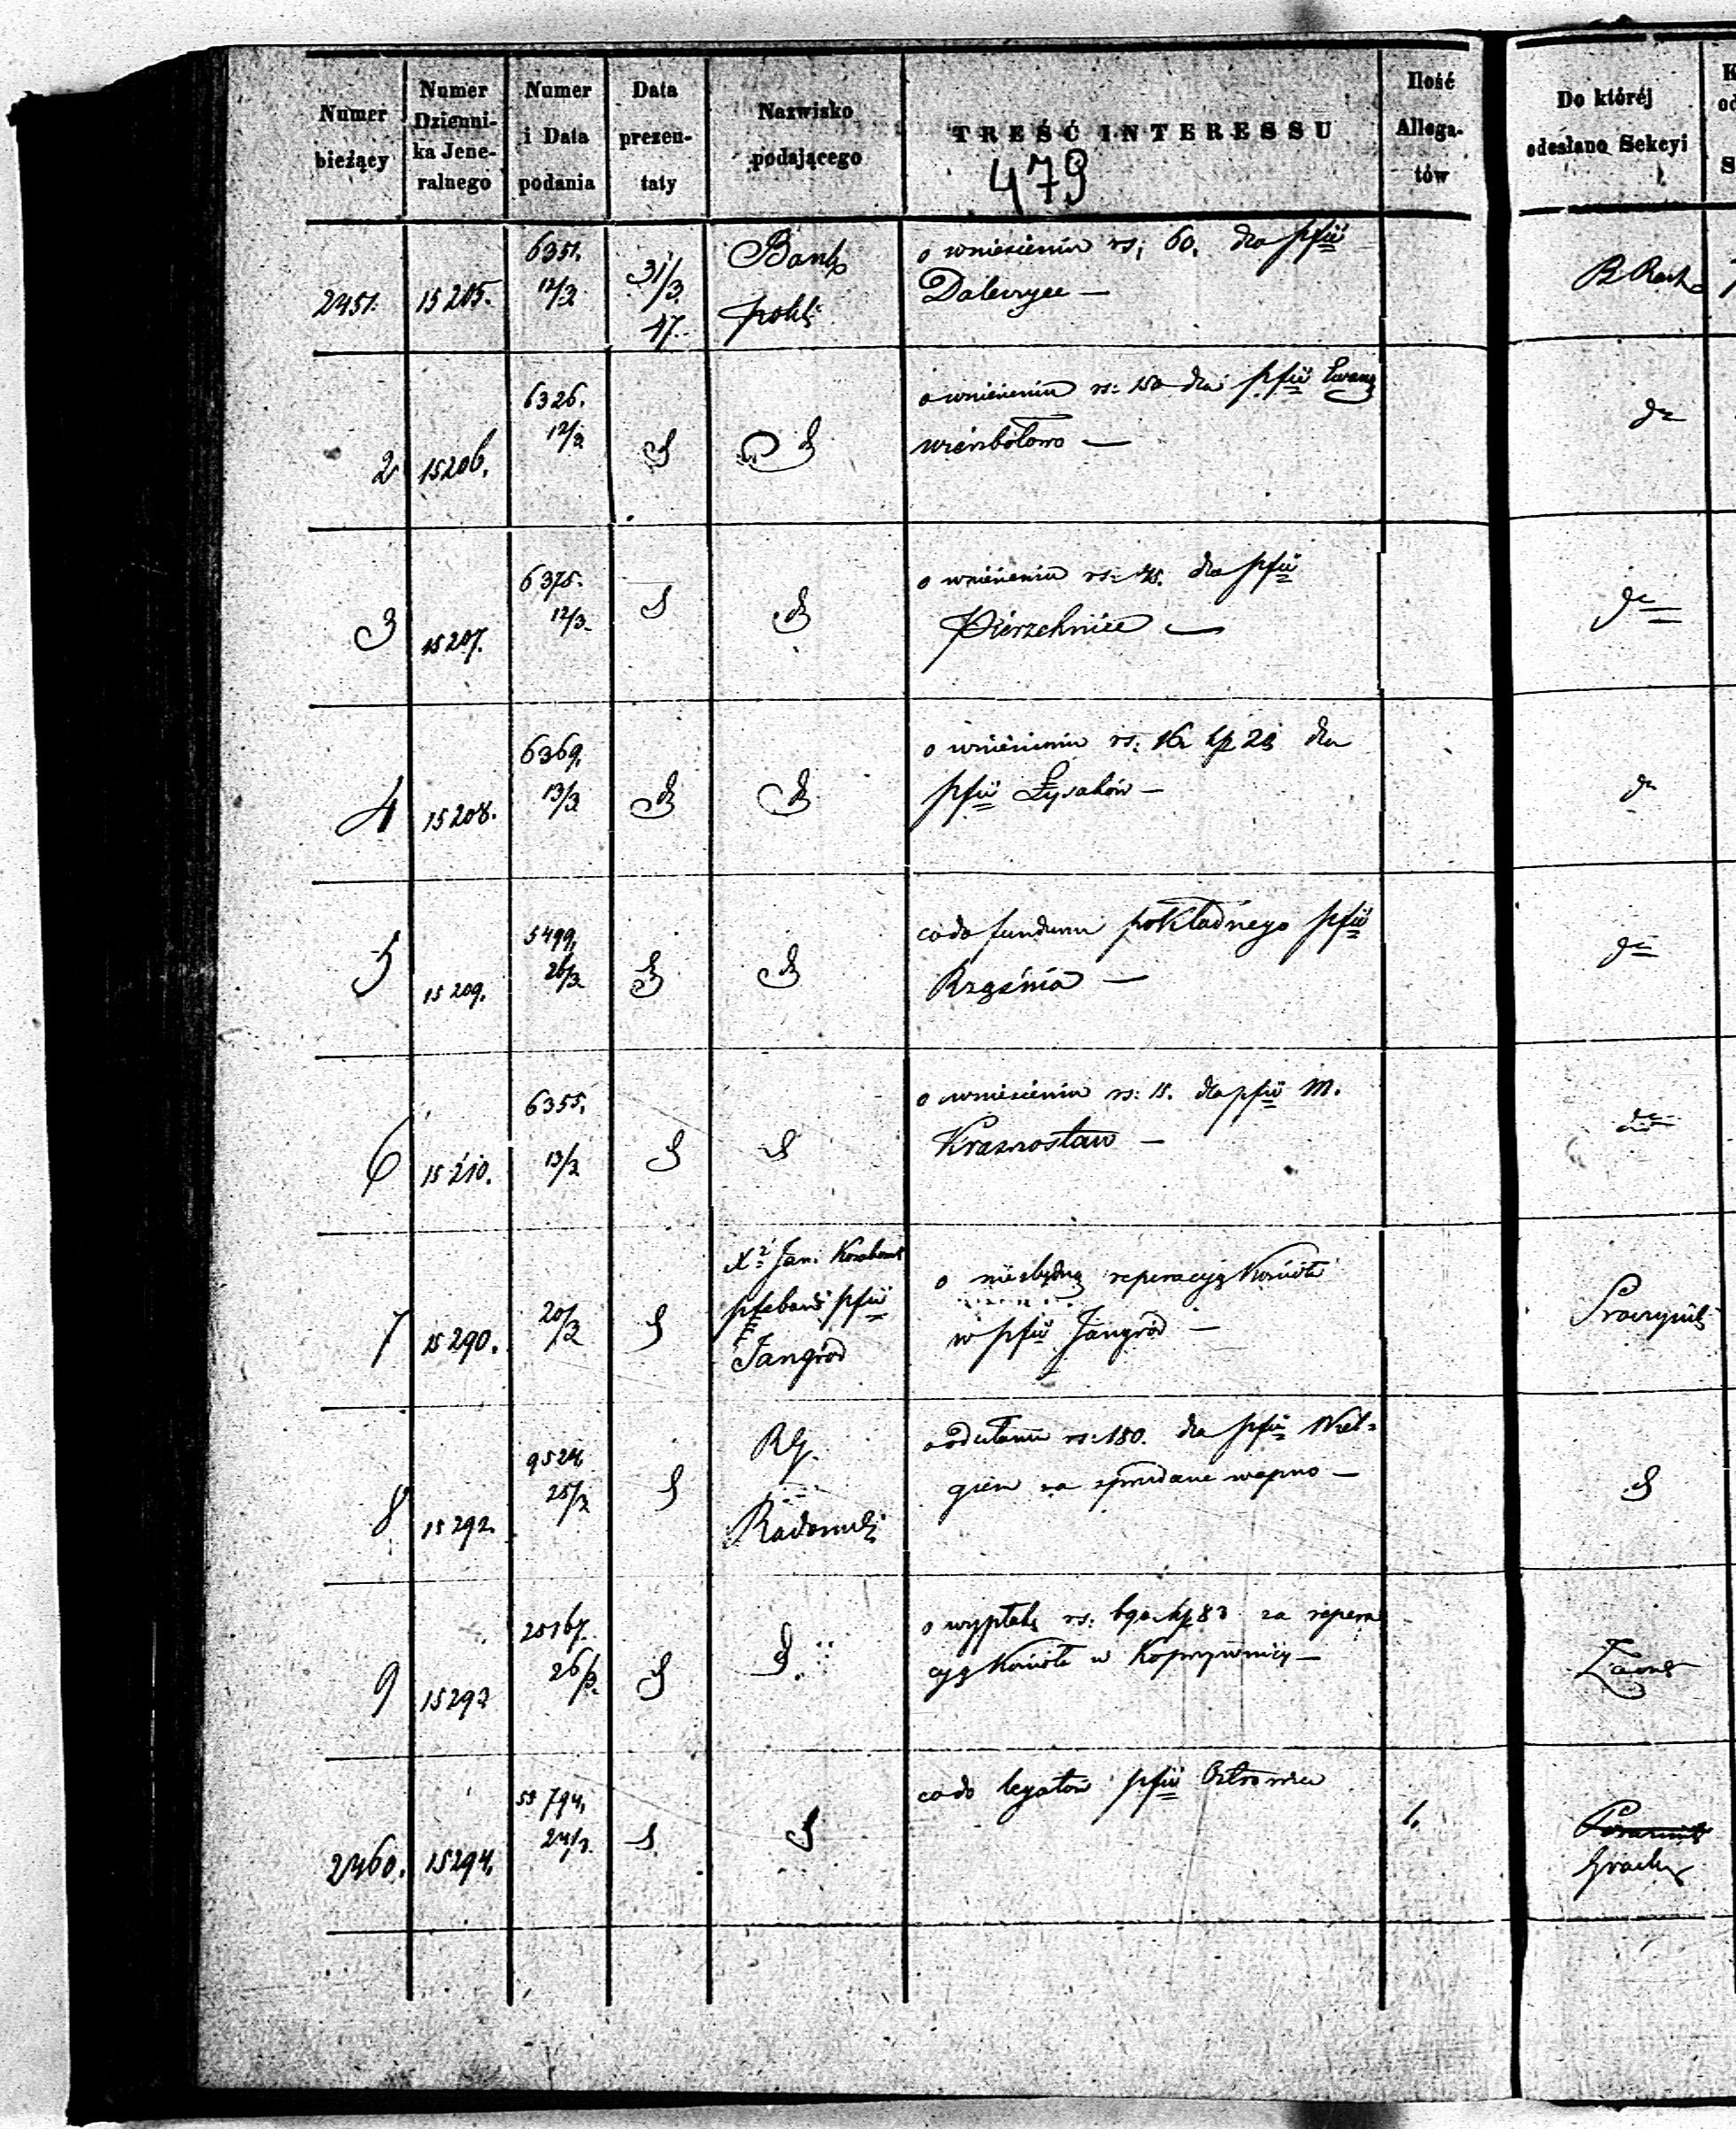 Numer bieżący
Numer Dzienni-ka Jene-ralnego
Numer i Data podania
Data prezen-taty
Nazwisko podającego
TREŚĆ INTERESSU
Ilość Allega-tów
Do któréj odesłano Sekcyi
479
2451. 15205. 6351. 12/3 31/3 47. Bank polski o wniesieniu rs; 60. dla pfii
Dalewyce —
2 15206. 6326. 12/3 o wniesieniu rs: 150 dla pfii Ewang
wierzbołowo — do
3 15207. 6375. 12/3 o wniesieniu rs: 45. dla pfii
Pierzchnice — do
4 15208. 6369. 13/3 o wniesieniu rs: 16 kp 20 dla
pfii Łysaków — do
5 15209. 5499, 26/3 co do funduszu pokładnego pfii
Rząśnia — do
6 15210. 6355. 13/3 o wniesieniu rs: 15. dla pfii M.
Krasnostaw — do
7 15290. 20/3 Xz Jan pleban pfii Jangród o niezbędną reperacyą Kościoła
w pfii Jangród —
8 15292. 9524, 25/3 RG. Radomski o odesłanie rs: 180. dla pfii Wiel-
gien za sprzedane wapno —
9 15293 25167. 26/3. o wypłatę rs: kp 83 za repera
cyą Kościoła w Koprzywnicy —
2460. 15294. 55794, 24/3. co do legatów pfii Ostrowce 1.